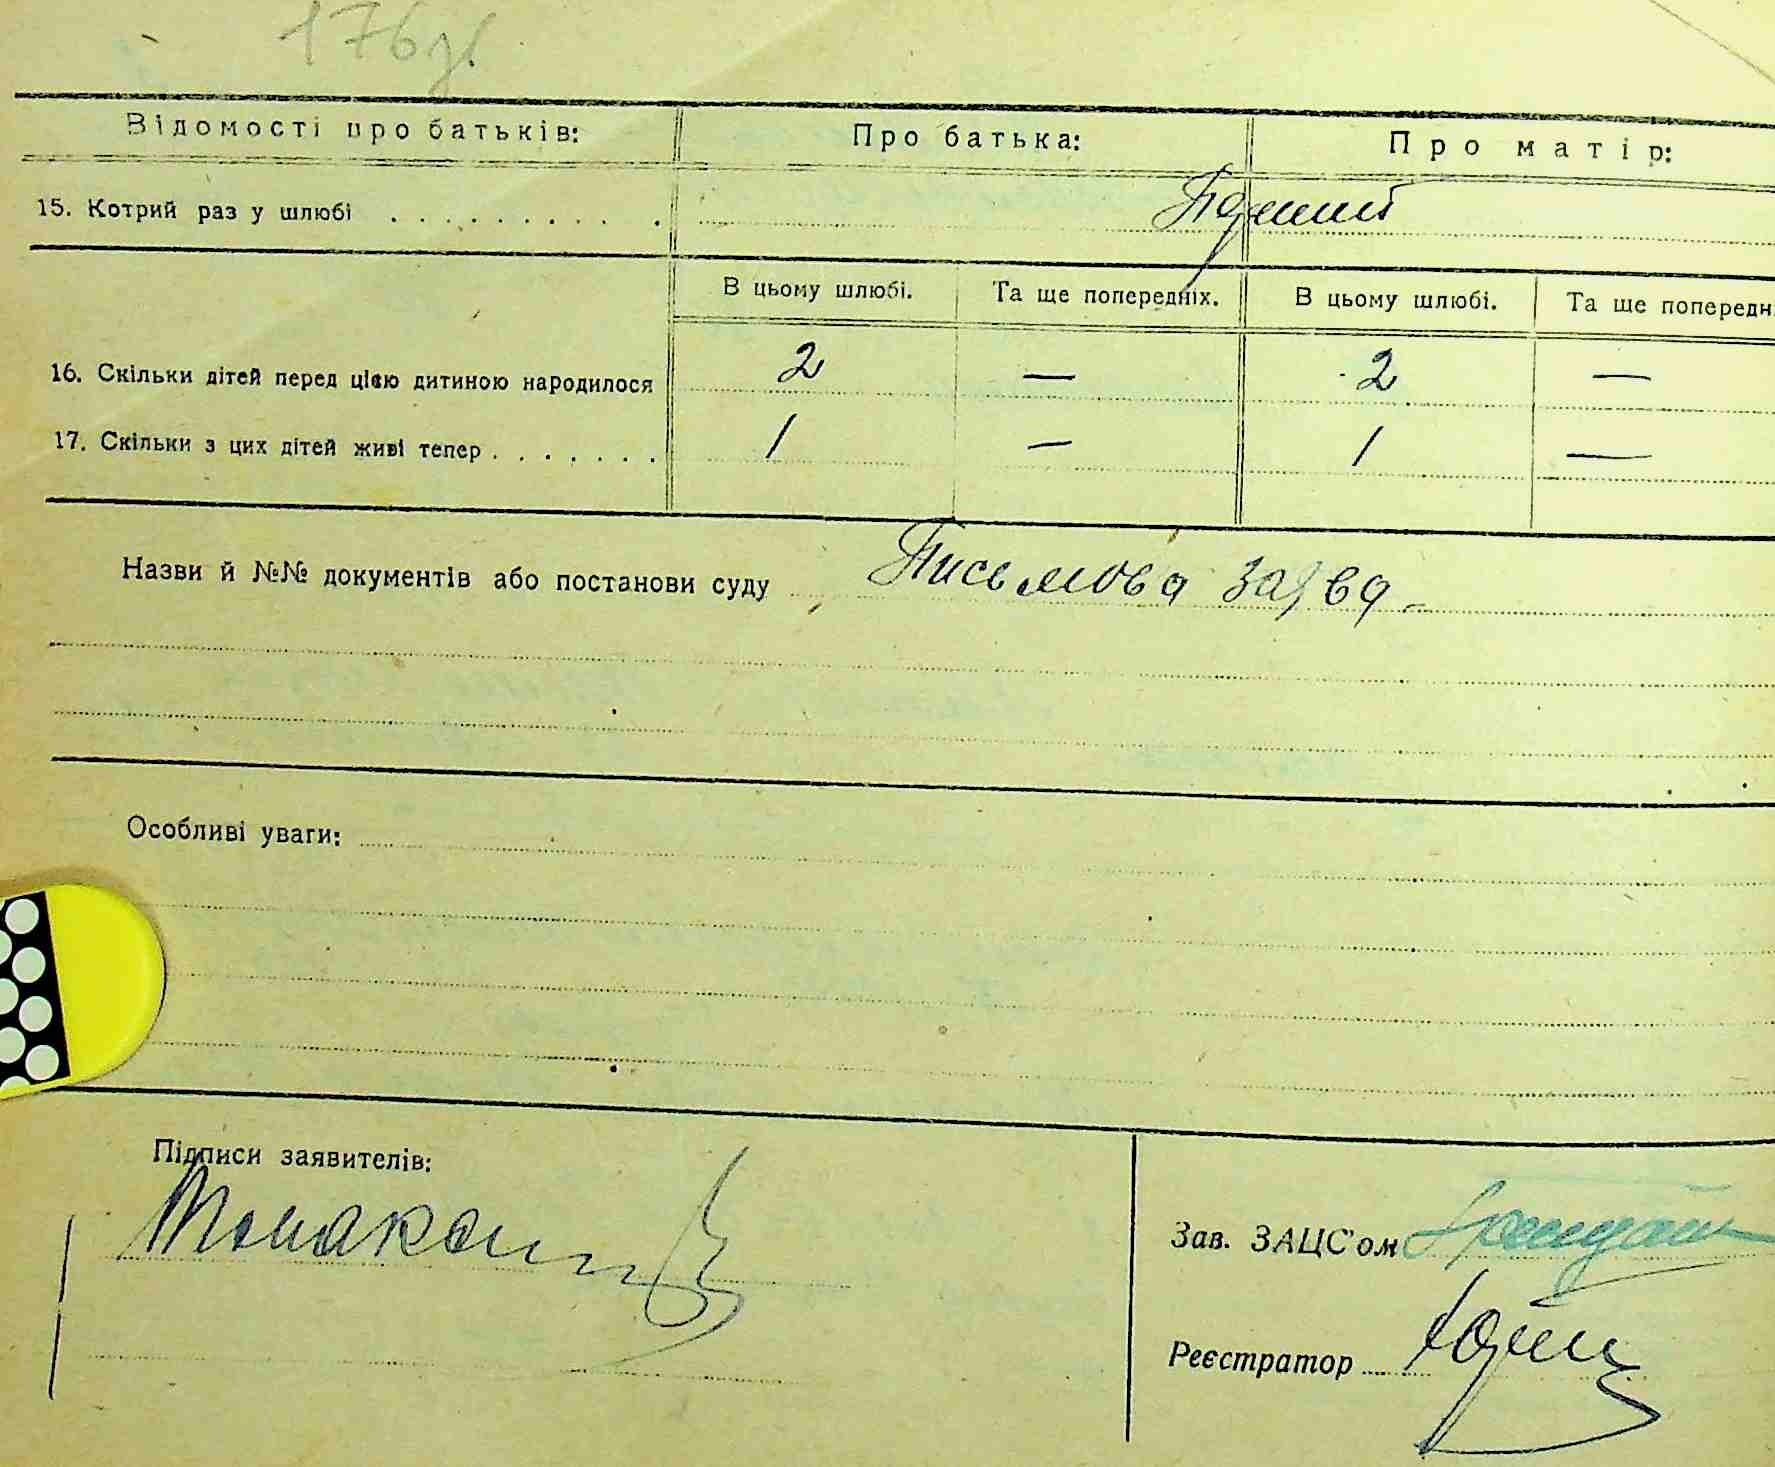 176
Відомості про батьків: Про батька: Про матір:
15. Котрий раз у шлюбі . . . . . . . . . .
В цьому шлюбі. Та ще попередніх. В цьому шлюбі. Та ще попередн
16. Скільки дітей перед цією дитиною народилося 2 — 2 —
17. Скільки з цих дітей живі тепер . . . . . . . 1 — 1 —
Назви й №№ документів або постанови суду Письмова заява
Особливі уваги:
Підписи заявителів:
Зав. ЗАЦС'ом
Реєстратор